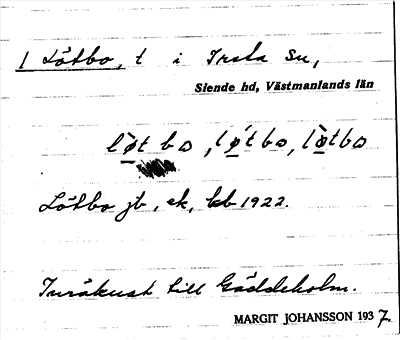 1 Lötbo, t i Irsta sn,
Siende hd, Västmanlands län
lø̀t bo, lǿt bo, lø̀tbo
Lötbo jb, ek, kb 1922.
Inräknat till Gäddeholm.
MARGIT JOHANSSON 1937.